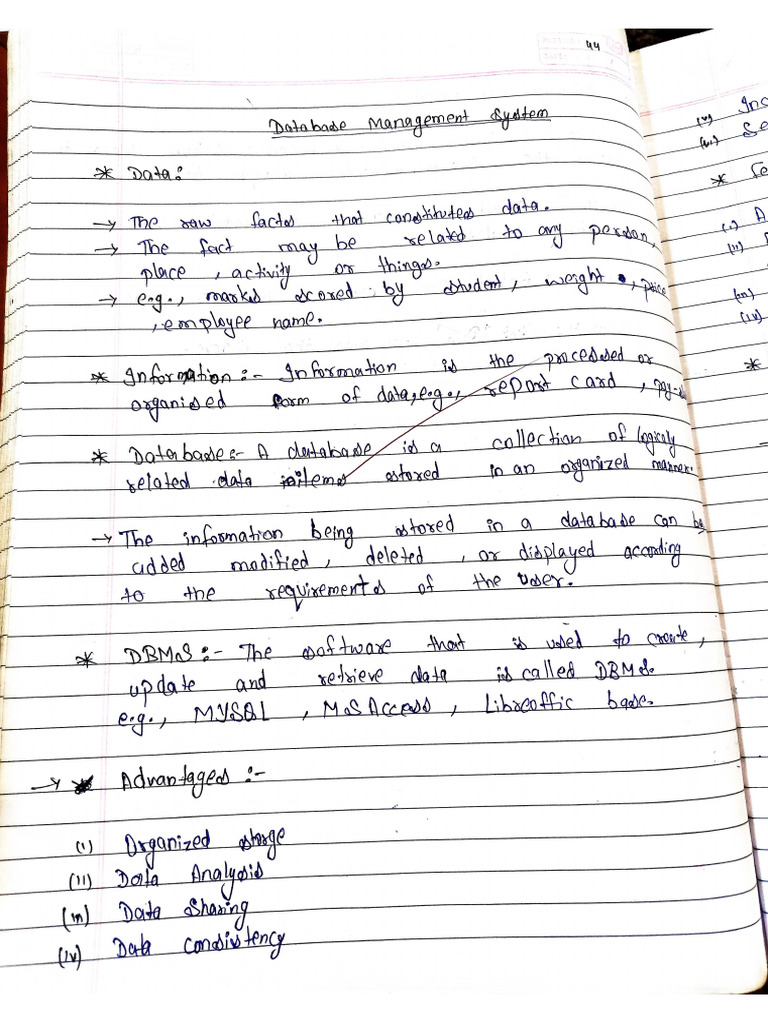 44
Database Management System
* Data:
→ The raw facts that constitutes data.
→ The fact may be related to any person,
place, activity or things.
→ e.g., marks scored by student, weight, price
, employee name.
* Information:- Information is the processed or
organised form of data, e.g., report card,
* Database:- A database is a collection of logicaly
related data items stored in an organized manner.
→ The information being stored in a database can be
added modified, deleted, or displayed according
to the requirements of the user.
* DBMS:- The software that is used to create,
update and retrieve data is called DBMS.
e.g., MYSQL, MS Access, Libreoffic base.
→ * Advantages:-
(i) Organized storge
(ii) Data Analysis
(iii) Data Sharing
(iv) Data consistency
(v) Inc
(vi) Se
*
(i) A
(ii)
(iii)
(iv)
*